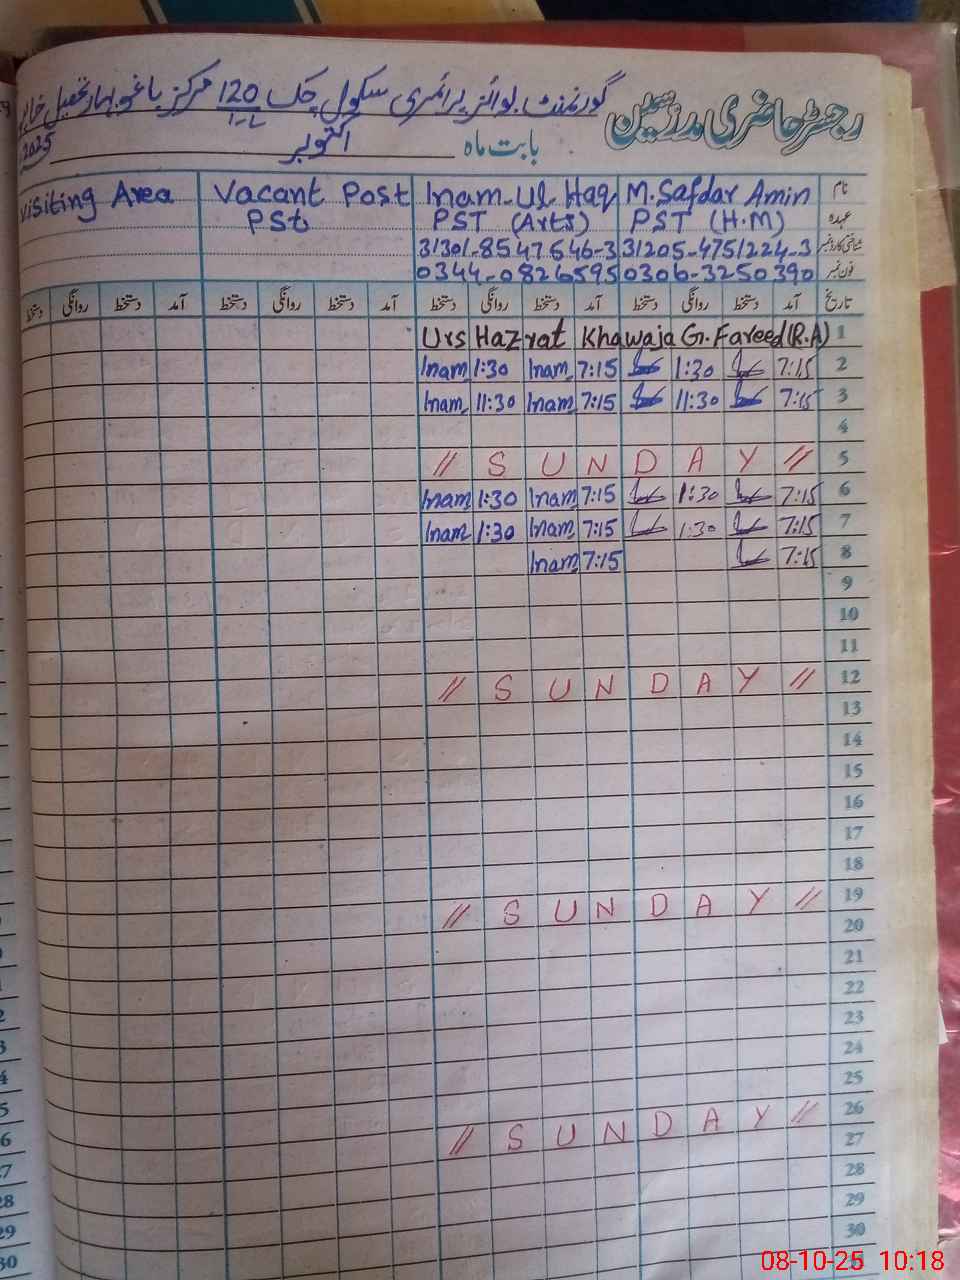 رجسٹر حاضری مدرسین
گورنمنٹ بوائز پرائمری سکول چک 120 مرکز باغوبہار تحصیل
بابت ماہ اکتوبر 2025
نام M. Safdar Amin Inam-Ul-Haq Vacant Post Visiting Area
عہدہ PST (H.M) PST (Arts) PST
شناختی کارڈ نمبر 31205-4751224-3 31301-8547646-3
فون نمبر 0306-3250390 0344-0826595
تاریخ آمد دستخط روانگی دستخط آمد دستخط روانگی دستخط آمد دستخط روانگی دستخط آمد دستخط روانگی دستخط
Urs Hazrat Khawaja G. Fareed (R.A) 1
Inam 1:30 Inam 7:15 1:30 7:15 2
Inam 11:30 Inam 7:15 11:30 7:15 3
4
// S U N D A Y // 5
Inam 1:30 Inam 7:15 1:30 7:15 6
Inam 1:30 Inam 7:15 1:30 7:15 7
Inam 7:15 7:15 8
9
10
11
// S U N D A Y // 12
13
14
15
16
17
18
// S U N D A Y // 19
20
21
22
23
24
25
// S U N D A Y // 26
27
28
29
30
08-10-25 10:18